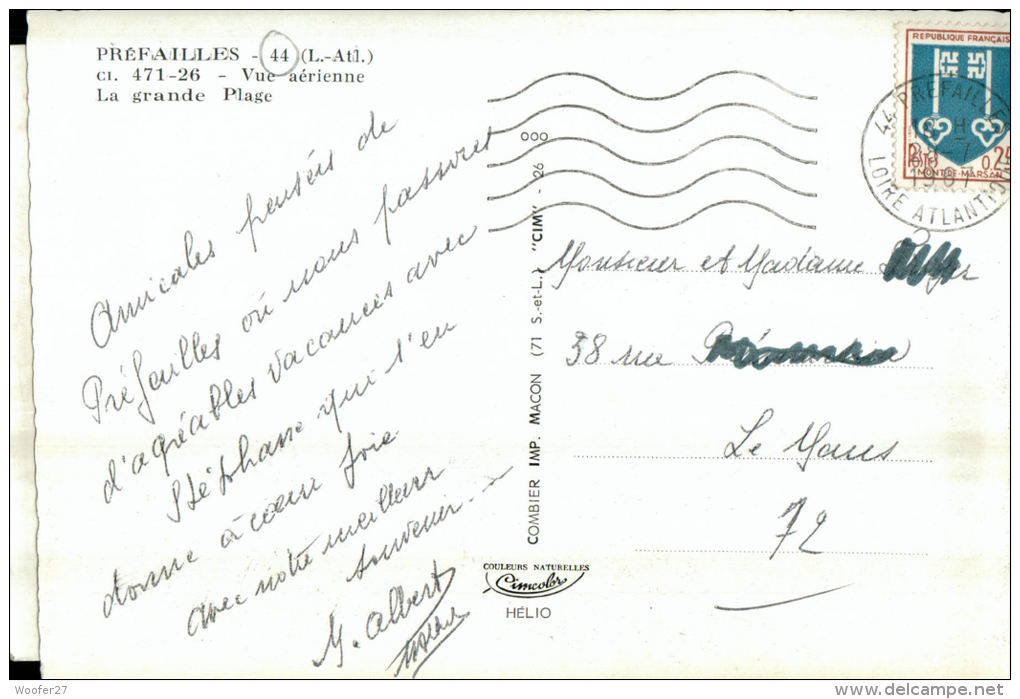 PRÉFAILLES - 44 (L.-Atl.)
CI. 471-26 - Vue aérienne
La grande Plage
Amicales pensées de
Préfailles où nous passons
d'agréables vacances avec
Stéphane qui s'en
donne à cœur joie
avec notre meilleur
souvenir
Y. Albert
COMBIER IMP. MACON (71 S.-et-L.) "CIM" - 26
000
COULEURS NATURELLES
Cimcolor
HÉLIO
REPUBLIQUE FRANÇAISE
POSTES 0,25
MONT-DE-MARSAN
44 PREFAILLES
1967
LOIRE ATLANTIQUE
Monsieur et Madame
38 rue
Le Mans
72
Woofer27
www.delcampe.net